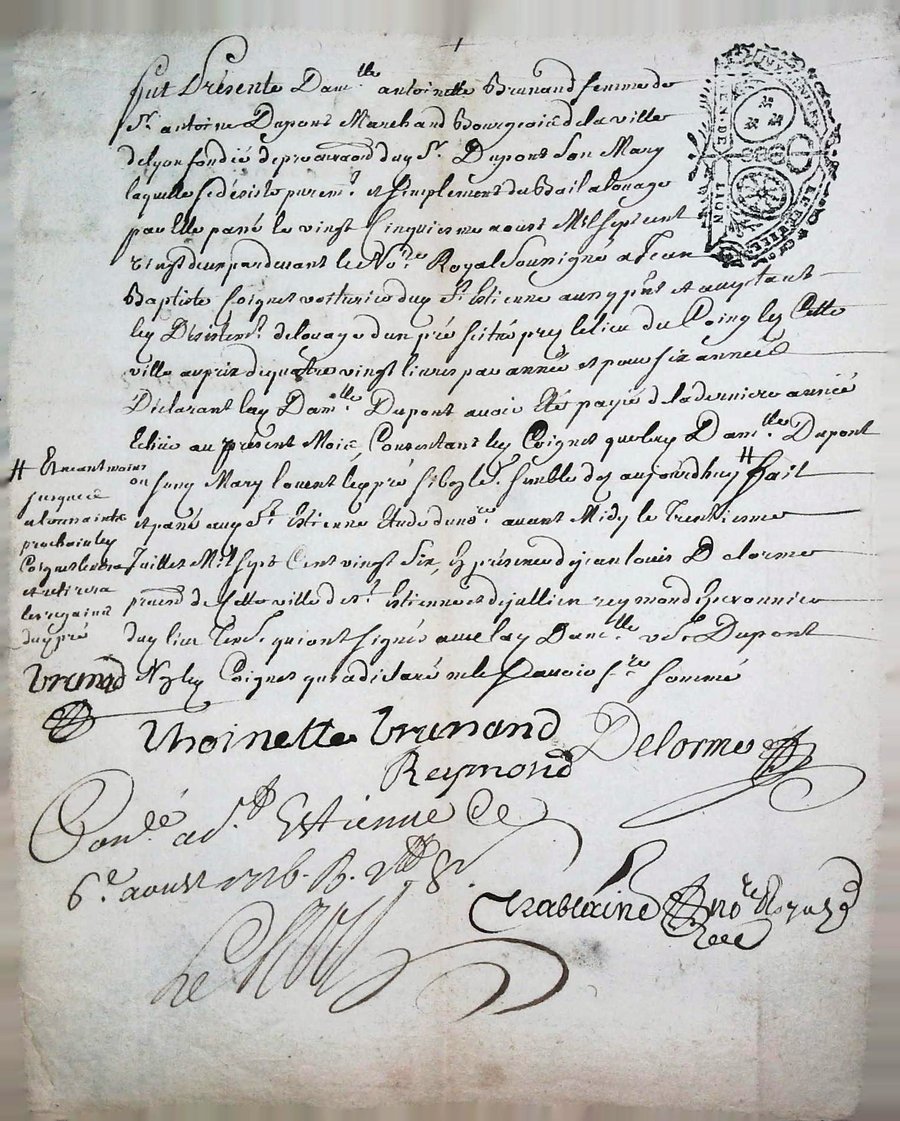 fut Présente Dam.lle antoinette Brunand femme de
S.r antoine Dupont Marchand Bourgeois de la ville
de lyon fondée de procuraõn dud S.r Dupont Son Mary
laquelle se désiste purem.t et simplement du Bail a louage
par Elle passé le vingt Cinquiesme aoust Mil Sept cent
vingt deux pardevant le No.re Royal Soussigné a Jean
Baptiste Coignet voiturier dud S.t Estienne
led Désistem.t de louage d'un pré Scitué pres le lieu du Coing les Cette
ville au prix de quatre vingt livres par année et pour six années
Déclarant lad Dam.lle Dupont avoir Eté payé de la derniere année
Echüe au présent Mois, Consentant led Coignet que lad Dam.lle Dupont
ou sond Mary louent led pré si bon leur semble des aujourdhuy # fait
et passé aud S.t Estienne Etude dud no.re avant Midy le Trentiesme
Juillet Mil Sept Cent vingt Six, En présence de jean louis Delorme
pratiõ de Cette ville de S.t Estienne et de jullien reymond Eperonnier
dud lieu Tes. qui ont signés avec lad Dam.lle Dupont
Non led Coignet qui a déclaré ne le sçavoir f.re sommé
# Et neantmoins
jusques
a la toussaints
prochain led
Coignet levera
et retirera
les regains
dud pré
brunand
thoinette brunand
Delorme
Reymond
Conlé a S.t Estienne Le
6.e aoust 1726. R.
Chablaine no.re Royal